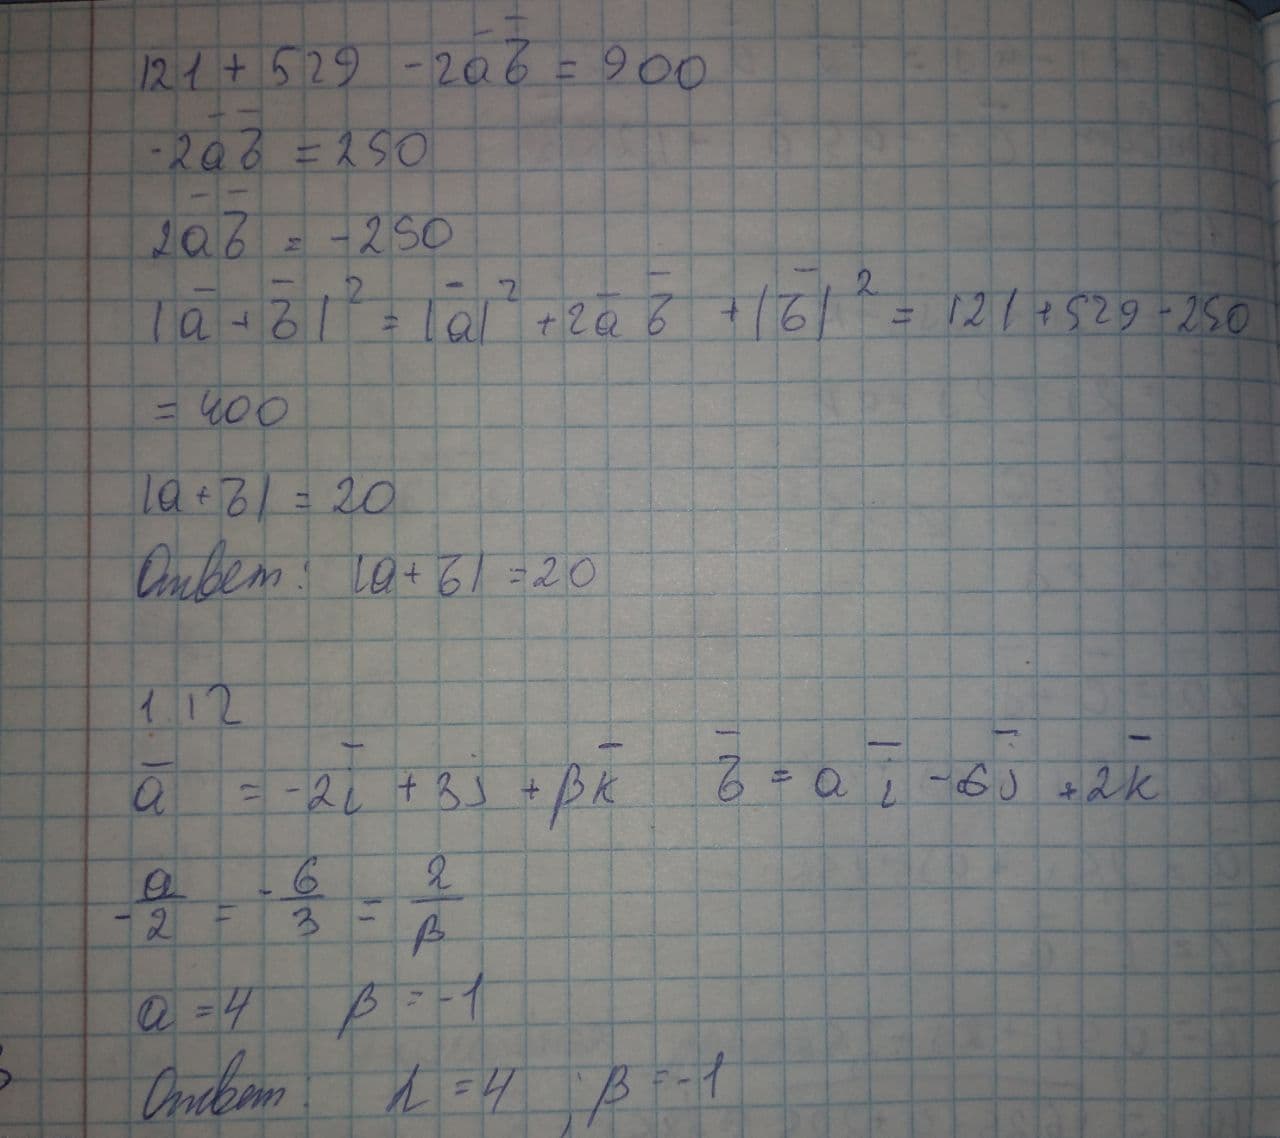 121 + 529 - 2a̅ b̅ = 900
-2a̅ b̅ = 250
2a̅ b̅ = -250
|a̅ + b̅|² = |a̅|² + 2a̅ b̅ + |b̅|² = 121 + 529 - 250
= 400
|a + b| = 20
Ответ: |a + b| = 20
1.12
a̅ = -2i̅ + 3j + βk̅   b̅ = a i̅ - 6j̅ + 2k̅
a/-2 = -6/3 = 2/β
a = 4   β = -1
Ответ: λ = 4 ; β = -1